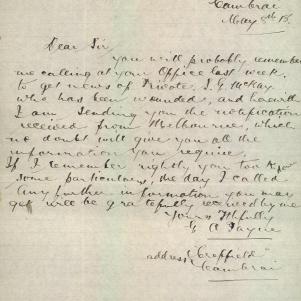 Cambrai
May 8th 18.
Dear Sir
you will probably remember
me calling at your Office last week.
to get news of Private J. G. McKay
who has been wounded, and herewith
I am sending you the notification
received from Melbourne, which
no doubt will give you all the
information you require
If I remember rightly, you took
some particulars, the day I called
Any further information you may
get will be gratefully received by me
Yours Ithfully
G A Payne
address "Creffield"
Cambrai